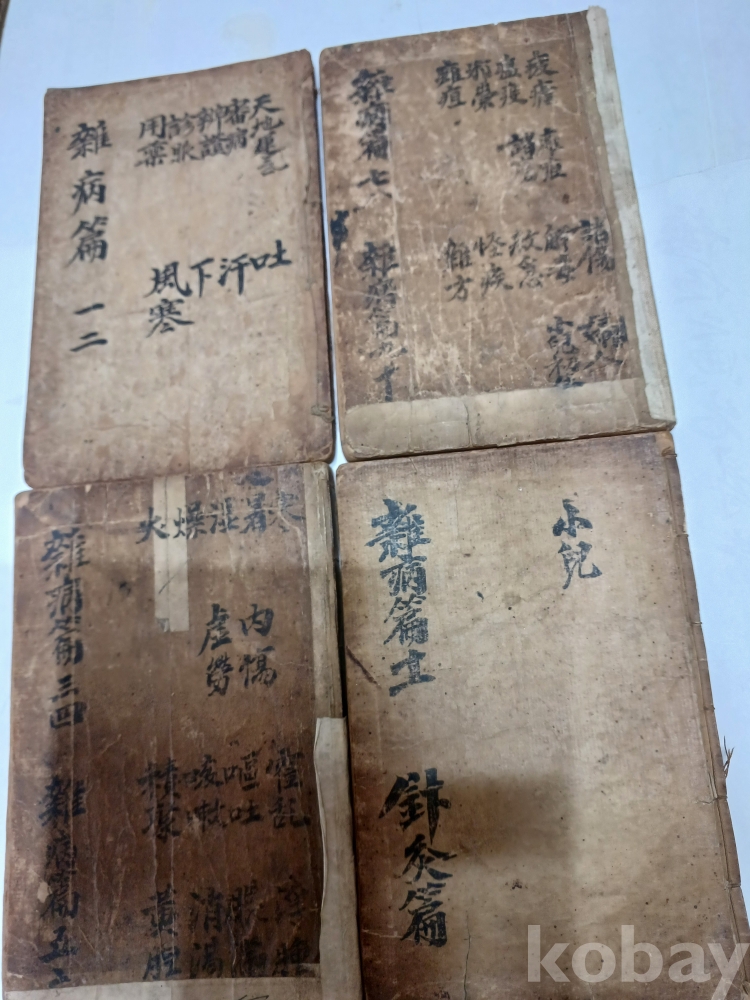 天地運氣
審病
辨證
診脈
用藥
吐汗下
風寒
雜病篇 一二
痎瘧
瘟疫
邪祟
癰疽
諸瘡
諸傷
解毒
救急
怪疾
雜方
婦人
雜病篇七八
雜病篇九十
寒暑湿燥火
内傷
虛勞
霍乱
嘔吐
咳嗽
積聚
浮腫
脹滿
消渴
黃胆
雜病篇三四
雜病篇五六
小兒
雜病篇十一
針灸篇
kobay